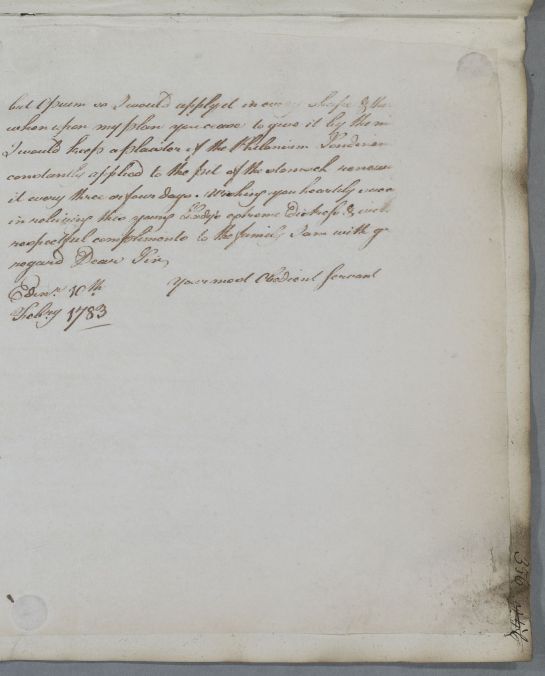 but Opium so I would apply it in every shape & the
when upon my plan you cease to give it by the m
I would keep a plaister of the Philonium Londinen
constantly applied to the pit of the stomach renew
it every three or four days. Wishing you heartily succe
in relieving this young Lady's extreme distress & with
respectful compliments to the family I am with g
regard Dear Sir
Your most Obedient servant
Edinr. 10th
Febry 1783
356